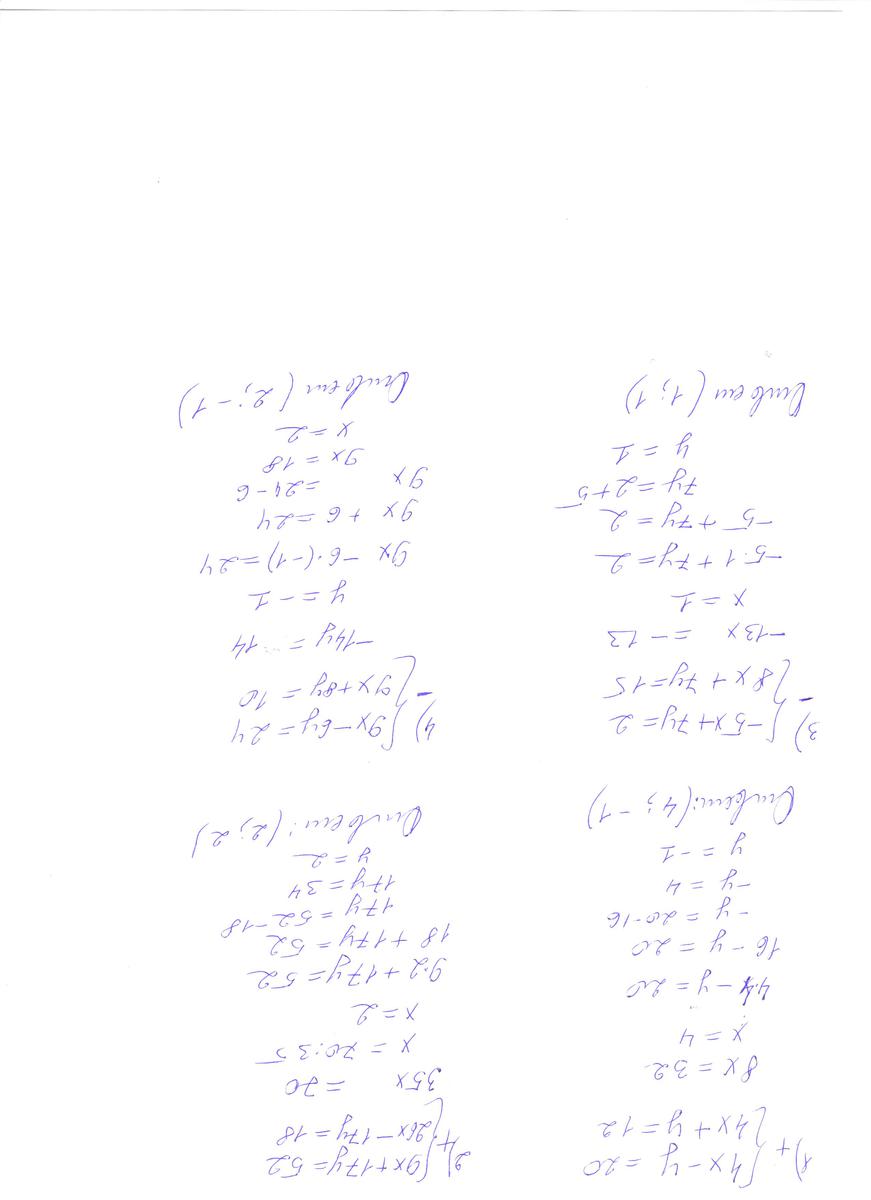 1) + { 4x - y = 20
4x + y = 12
8x = 32
x = 4
4·4 - y = 20
16 - y = 20
-y = 20-16
-y = 4
y = -1
Ответ: (4; -1)
2) + { 9x + 17y = 52
26x - 17y = 18
35x = 70
x = 70:35
x = 2
9·2 + 17y = 52
18 + 17y = 52
17y = 52-18
17y = 34
y = 2
Ответ: (2; 2)
3) - { -5x + 7y = 2
8x + 7y = 15
-13x = -13
x = 1
-5·1 + 7y = 2
-5 + 7y = 2
7y = 2+5
y = 1
Ответ (1; 1)
4) - { 9x - 6y = 24
9x + 8y = 10
-14y = 14
y = -1
9x - 6·(-1) = 24
9x + 6 = 24
9x = 24-6
9x = 18
x = 2
Ответ (2; -1)